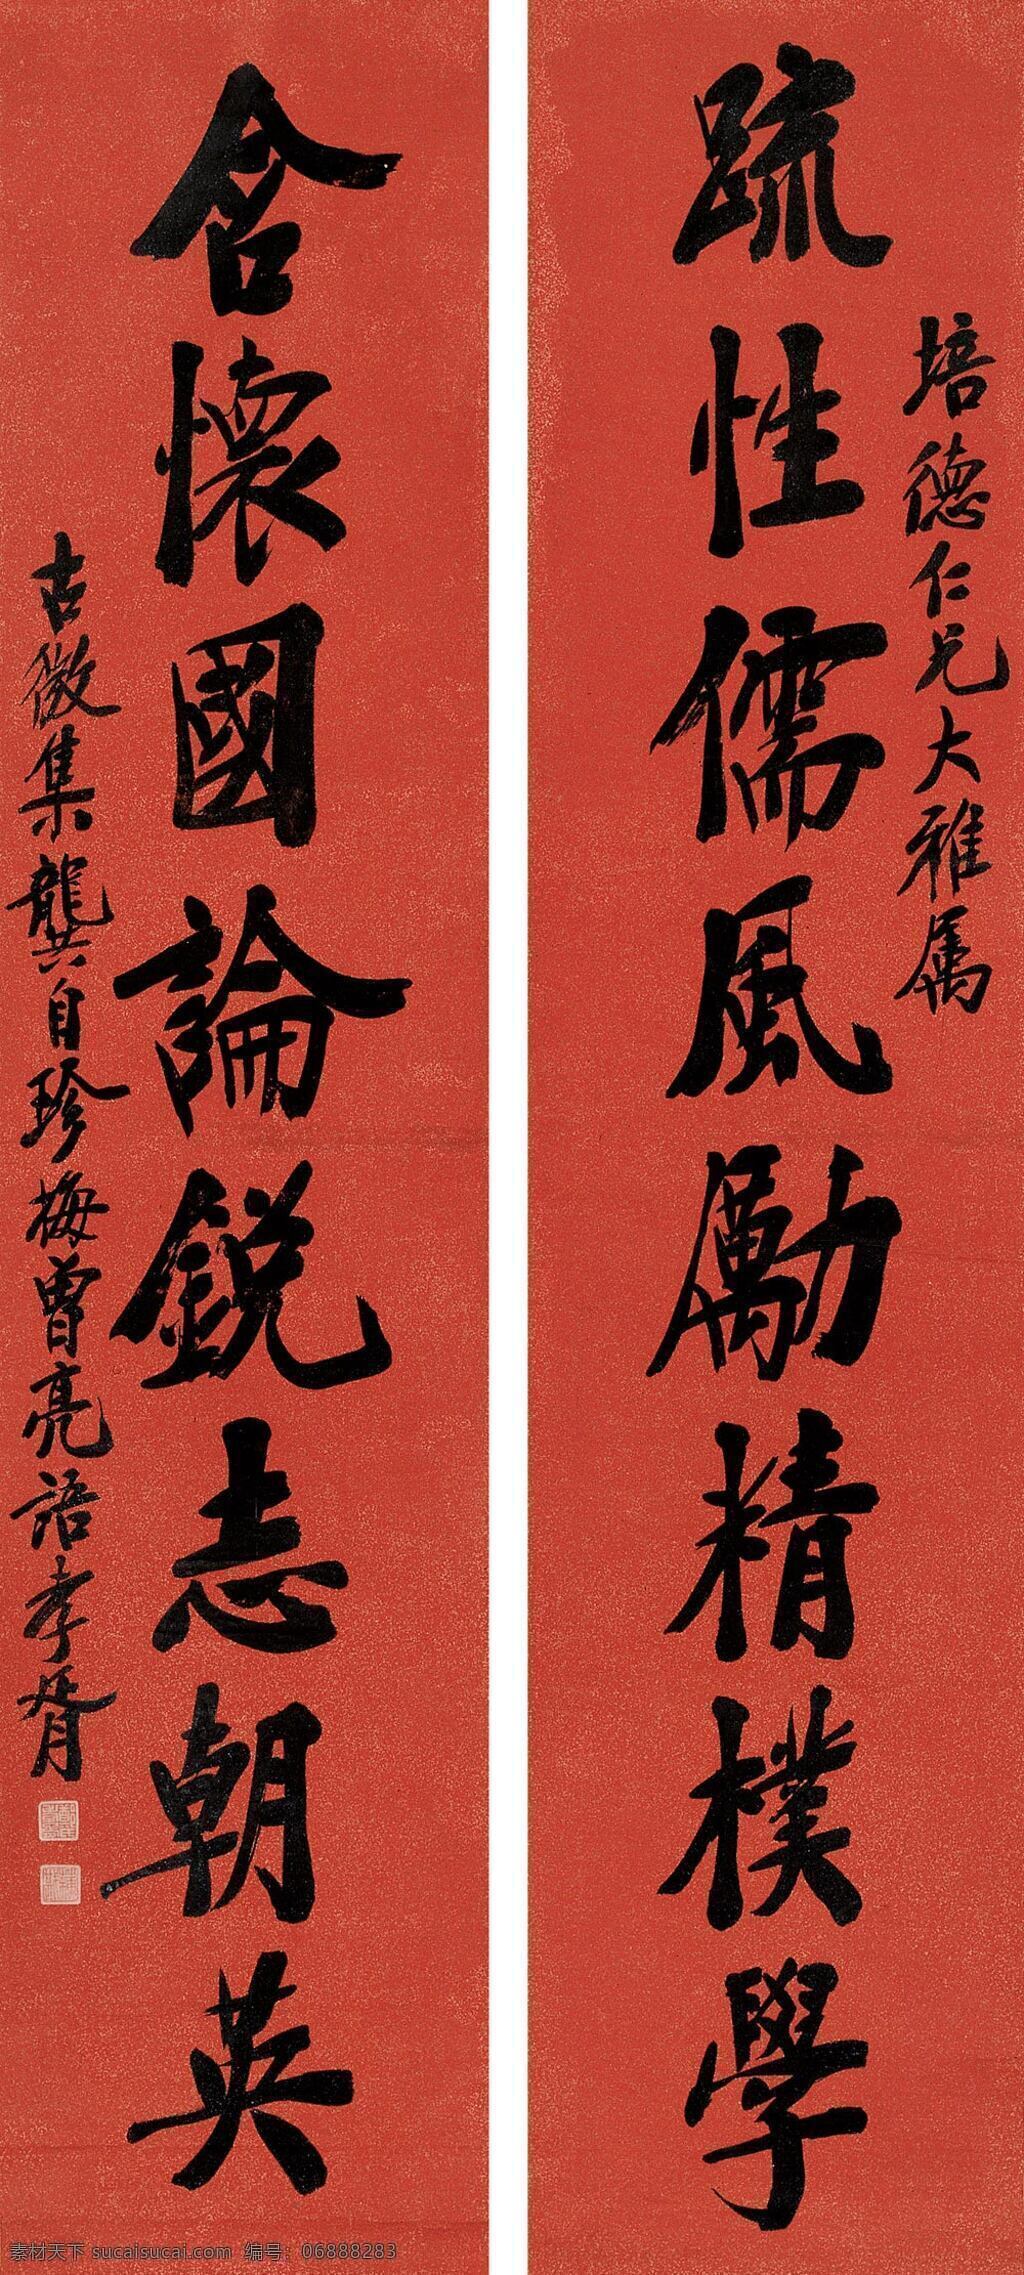 培德仁兄大雅属
疏性儒風勵精樸學
含懷國論銳志朝英
古微集龔自珍梅曾亮語孝胥
素材天下 sucaisucai.com 编号：06888283